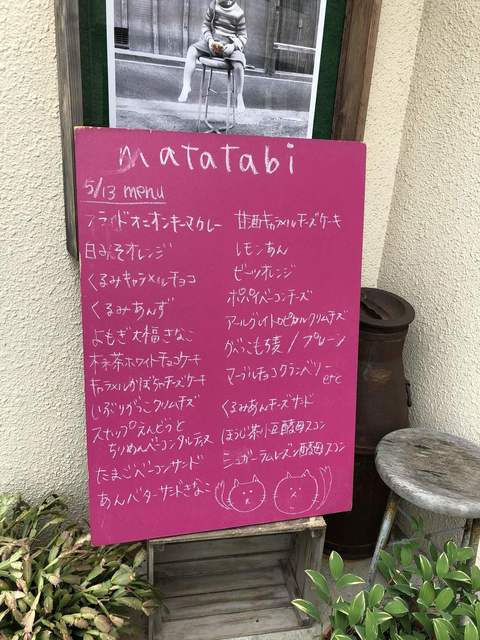 matatabi
5/13 menu
フライドオニオンキーマカレー
白みそオレンジ
くるみキャラメルチョコ
くるみあんず
よもぎ大福きなこ
ホワイトチョコケーキ
キャラメルかぼちゃチーズケーキ
いぶりがっこクリームチーズ
スナップえんどうと
ちりめんベーコンタルティーヌ
たまごベーコンサンド
あんバターサンドきなこ
甘酒キャラメルチーズケーキ
レモンあん
ビーツオレンジ
ポパイベーコンチーズ
アールグレイトロピカルクリームチーズ
もち麦/プレーン
マーブルチョコクランベリー
etc
くるみあんチーズサンド
ほうじ茶小豆酵母スコン
シュガーラムレーズン酵母スコン